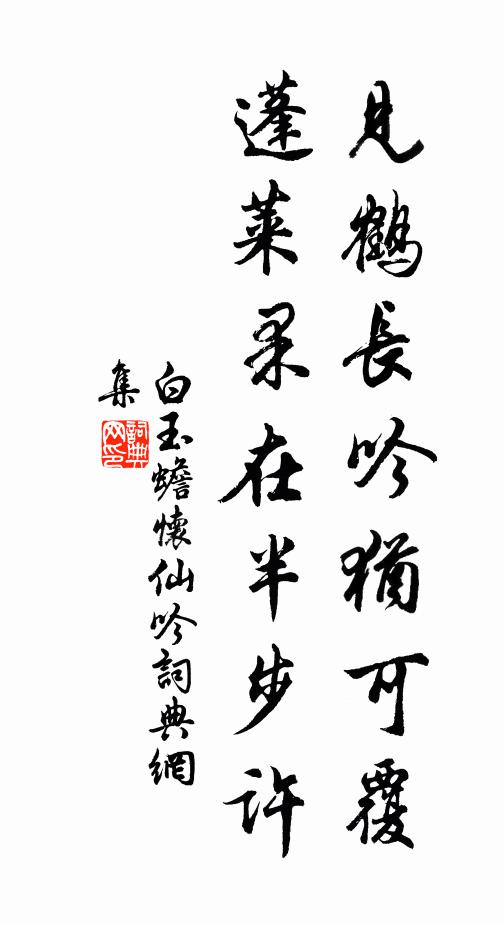 見鶴長吟猶可覆
蓬萊果在半步許
白玉蟾懷仙吟詞典網
集
詞典
网印